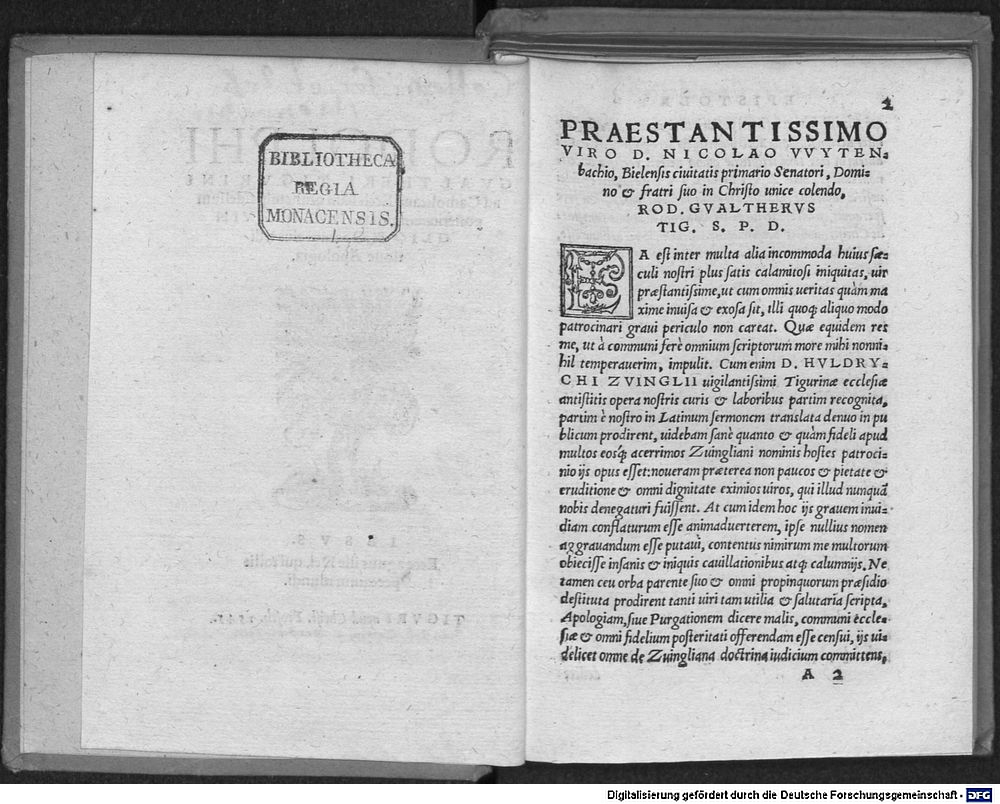 BIBLIOTHECA
REGIA
MONACENSIS.
2
PRAESTANTISSIMO
VIRO D. NICOLAO VVYTEN⸗
bachio, Bielensis ciuitatis primario Senatori, Domi⸗
no & fratri suo in Christo unice colendo,
ROD. GVALTHERVS
TIG. S. P. D.
EA est inter multa alia incommoda huius sæ⸗
culi nostri plus satis calamitosi iniquitas, uir
præstantissime, ut cum omnis ueritas quàm ma
xime inuisa & exosa sit, illi quoq; aliquo modo
patrocinari graui periculo non careat. Quæ equidem res
me, ut à communi ferè omnium scriptorum more mihi nonni⸗
hil temperauerim, impulit. Cum enim D. HVLDRY⸗
CHI ZVINGLII uigilantissimi Tigurinæ ecclesiæ
antistitis opera nostris curis & laboribus partim recognita,
partim è nostro in Latinum sermonem translata denuo in pu
blicum prodirent, uidebam sanè quanto & quàm fideli apud
multos eosq; acerrimos Zuingliani nominis hostes patroci⸗
nio ijs opus esset: noueram præterea non paucos & pietate &
eruditione & omni dignitate eximios uiros, qui illud nunquã
nobis denegaturi fuissent. At cum idem hoc ijs grauem inui⸗
diam conflaturum esse animaduerterem, ipse nullius nomen
aggrauandum esse putaui, contentus nimirum me multorum
obiecisse insanis & iniquis cauillationibus atq; calumnijs. Ne
tamen ceu orba parente suo & omni propinquorum præsidio
destituta prodirent tanti uiri tam utilia & salutaria scripta,
Apologiam, siue Purgationem dicere malis, communi eccle⸗
siæ & omni fidelium posteritati offerendam esse censui, ijs ui⸗
delicet omne de Zuingliana doctrina iudicium committens,
A 2
Digitalisierung gefördert durch die Deutsche Forschungsgemeinschaft - DFG